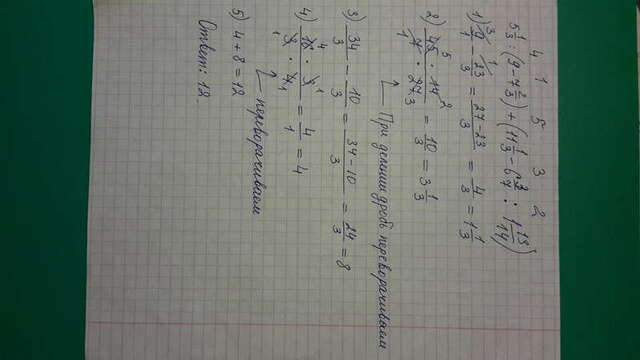 4 1 5 3 2
5 1/3 : (9 - 7 2/3) + (11 1/3 - 6 3/7 : 1 13/14)
1) 9/1 - 23/3 = 27-23/3 = 4/3 = 1 1/3
2) 45/7 · 14/27 = 10/3 = 3 1/3
При делении дробь переворачиваем
3) 34/3 - 10/3 = 34-10/3 = 24/3 = 8
4) 16/3 · 3/4 = 4/1 = 4
переворачиваем
5) 4 + 8 = 12
Ответ: 12.